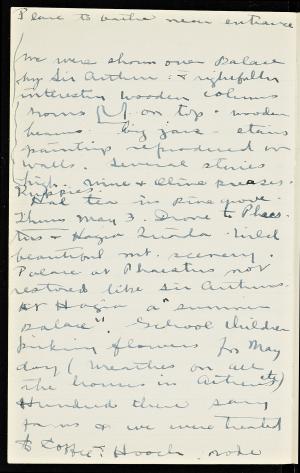 Place to bathe near entrance
We were shown over Palace
by Sir Arthur & rightfully
interesting wooden columns
horns on top. wooden
beams big jars. stairs
painting reproduced on
walls. Several stories
high. wine & olive presses.
Poppies.
Had tea in pine grove.
Thurs May 3. Drove to Phaes-
tus & Hagia Triada. Wild
beautiful mt. scenery.
Palace at Phaestus not
restored like Sir Arthurs.
At Hagia a "summer
palace". School children
picking flowers for May
day (wreaths on all
the houses in Athens etc)
Hundred there sang
for us & we were treated
to coffee & Hooch. rode